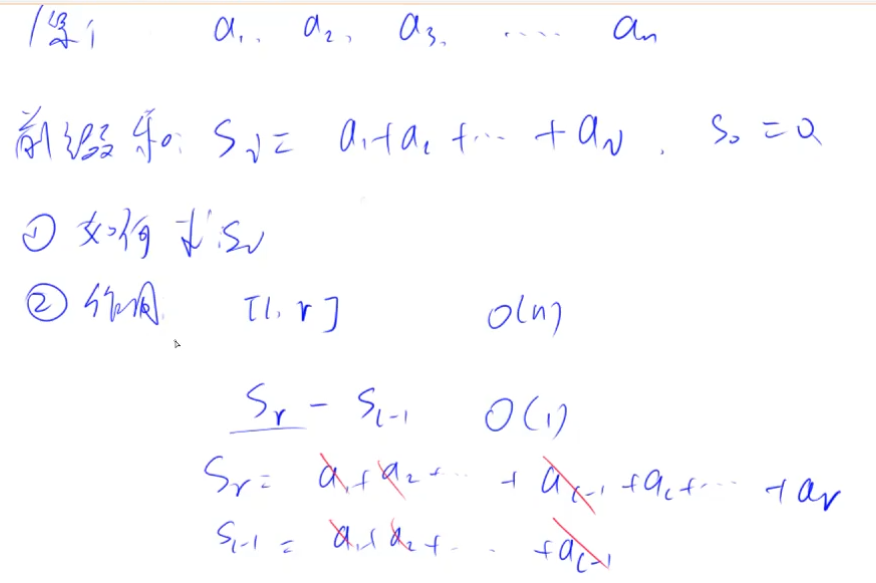 a₁, a₂, a₃, ····· aₙ
前缀和: Sᵢ = a₁+a₂+··· +aᵢ. S₀ = 0
① 如何求Sᵢ
② 作用 [l, r] O(n)
Sᵣ - Sₗ₋₁ O(1)
Sᵣ = a₁+a₂+··· + aₗ₋₁+aₗ+··· +aᵣ
Sₗ₋₁ = a₁+a₂+·· · +aₗ₋₁